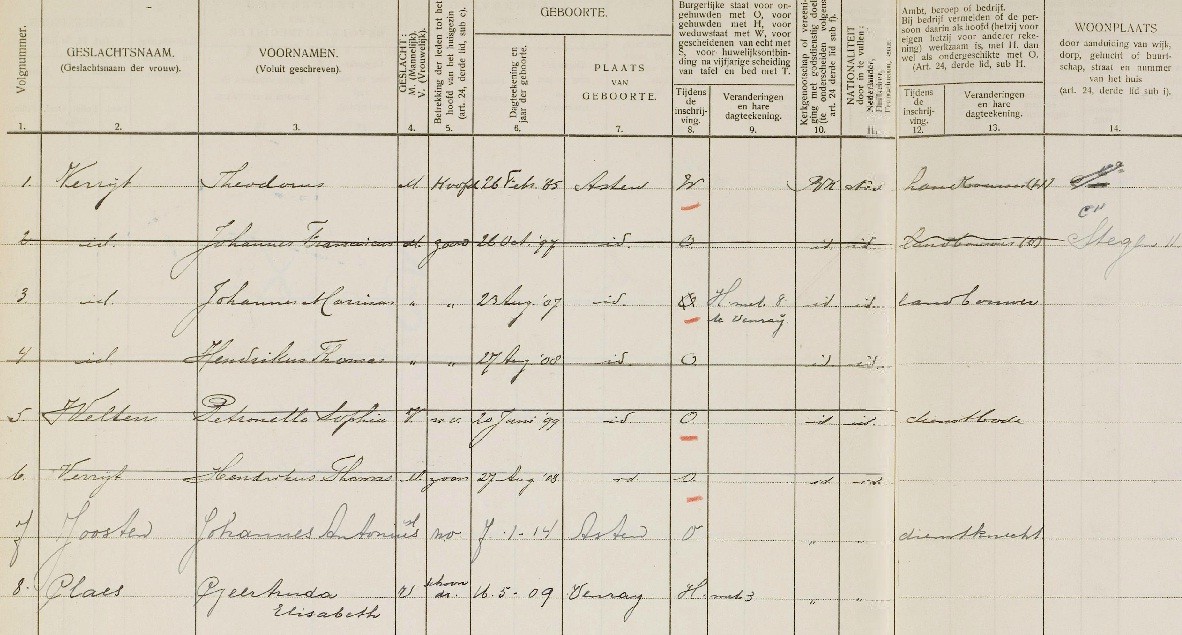 Volgnummer.
GESLACHTSNAAM.
(Geslachtsnaam der vrouw).
VOORNAMEN.
(Voluit geschreven).
GESLACHT:
M. (Mannelijk).
V. (Vrouwelijk).
Betrekking der leden tot het
hoofd van het huisgezin
(art. 24, derde lid, sub c).
GEBOORTE.
Dagteekening en
jaar der geboorte.
PLAATS
VAN
GEBOORTE.
Burgerlijke staat voor on-
gehuwden met O, voor
gehuwden met H, voor
weduwstaat met W, voor
gescheidenen van echt met
S, voor huwelijksontbin-
ding na vijfjarige scheiding
van tafel en bed met T.
Tijdens
de
inschrij-
ving.
Veranderingen
en hare
dagteekening.
Kerkgenootschap of vereeni-
ging met godsdienstig doel
(te onderscheiden volgens
art. 24 derde lid sub f).
NATIONALITEIT
door in te vullen:
Nederlander,
Ambt, beroep of bedrijf.
Bij bedrijf vermelden of de per-
soon daarin als hoofd (hetzij voor
eigen hetzij voor anderer reke-
ning) werkzaam is, met H. dan
wel als ondergeschikte met O.
(Art. 24, derde lid, sub H.
Tijdens
de
inschrij-
ving.
Veranderingen
en hare
dagteekening.
WOONPLAATS
door aanduiding van wijk,
dorp, gehucht of buurt-
schap, straat en nummer
van het huis
(art. 24, derde lid sub i).
1. 2. 3. 4. 5. 6. 7. 8. 9. 10. 11. 12. 13. 14.
1. Verrijt Theodorus M. Hoofd 26 Feb. '65 Asten W RK Ned landbouwer (H)
2 id. Johannes Franciscus M. zoon 26 Oct. '97 id. O id id. Landbouwer (O) Steg 11
3 id. Johannes Marinus " " 23 Aug. '07 id. O H. met 8 id id. landbouwer
te Venray
4. id Hendrikus Thomas " " 27 Aug '08 id O id id.
5 Welten Petronella Sophia V. 20 Juni '99 id O id id. dienstbode
6. Verrijt Hendrikus Thomas M. zoon 27 Aug '08 id O id id.
7 Joosten Johannes Antonius M no 7-1-14 Asten O " " dienstknecht
8. Claes Geertruda V schoon 16.5-09 Venray H. met 3 " "
dr.
Elisabeth